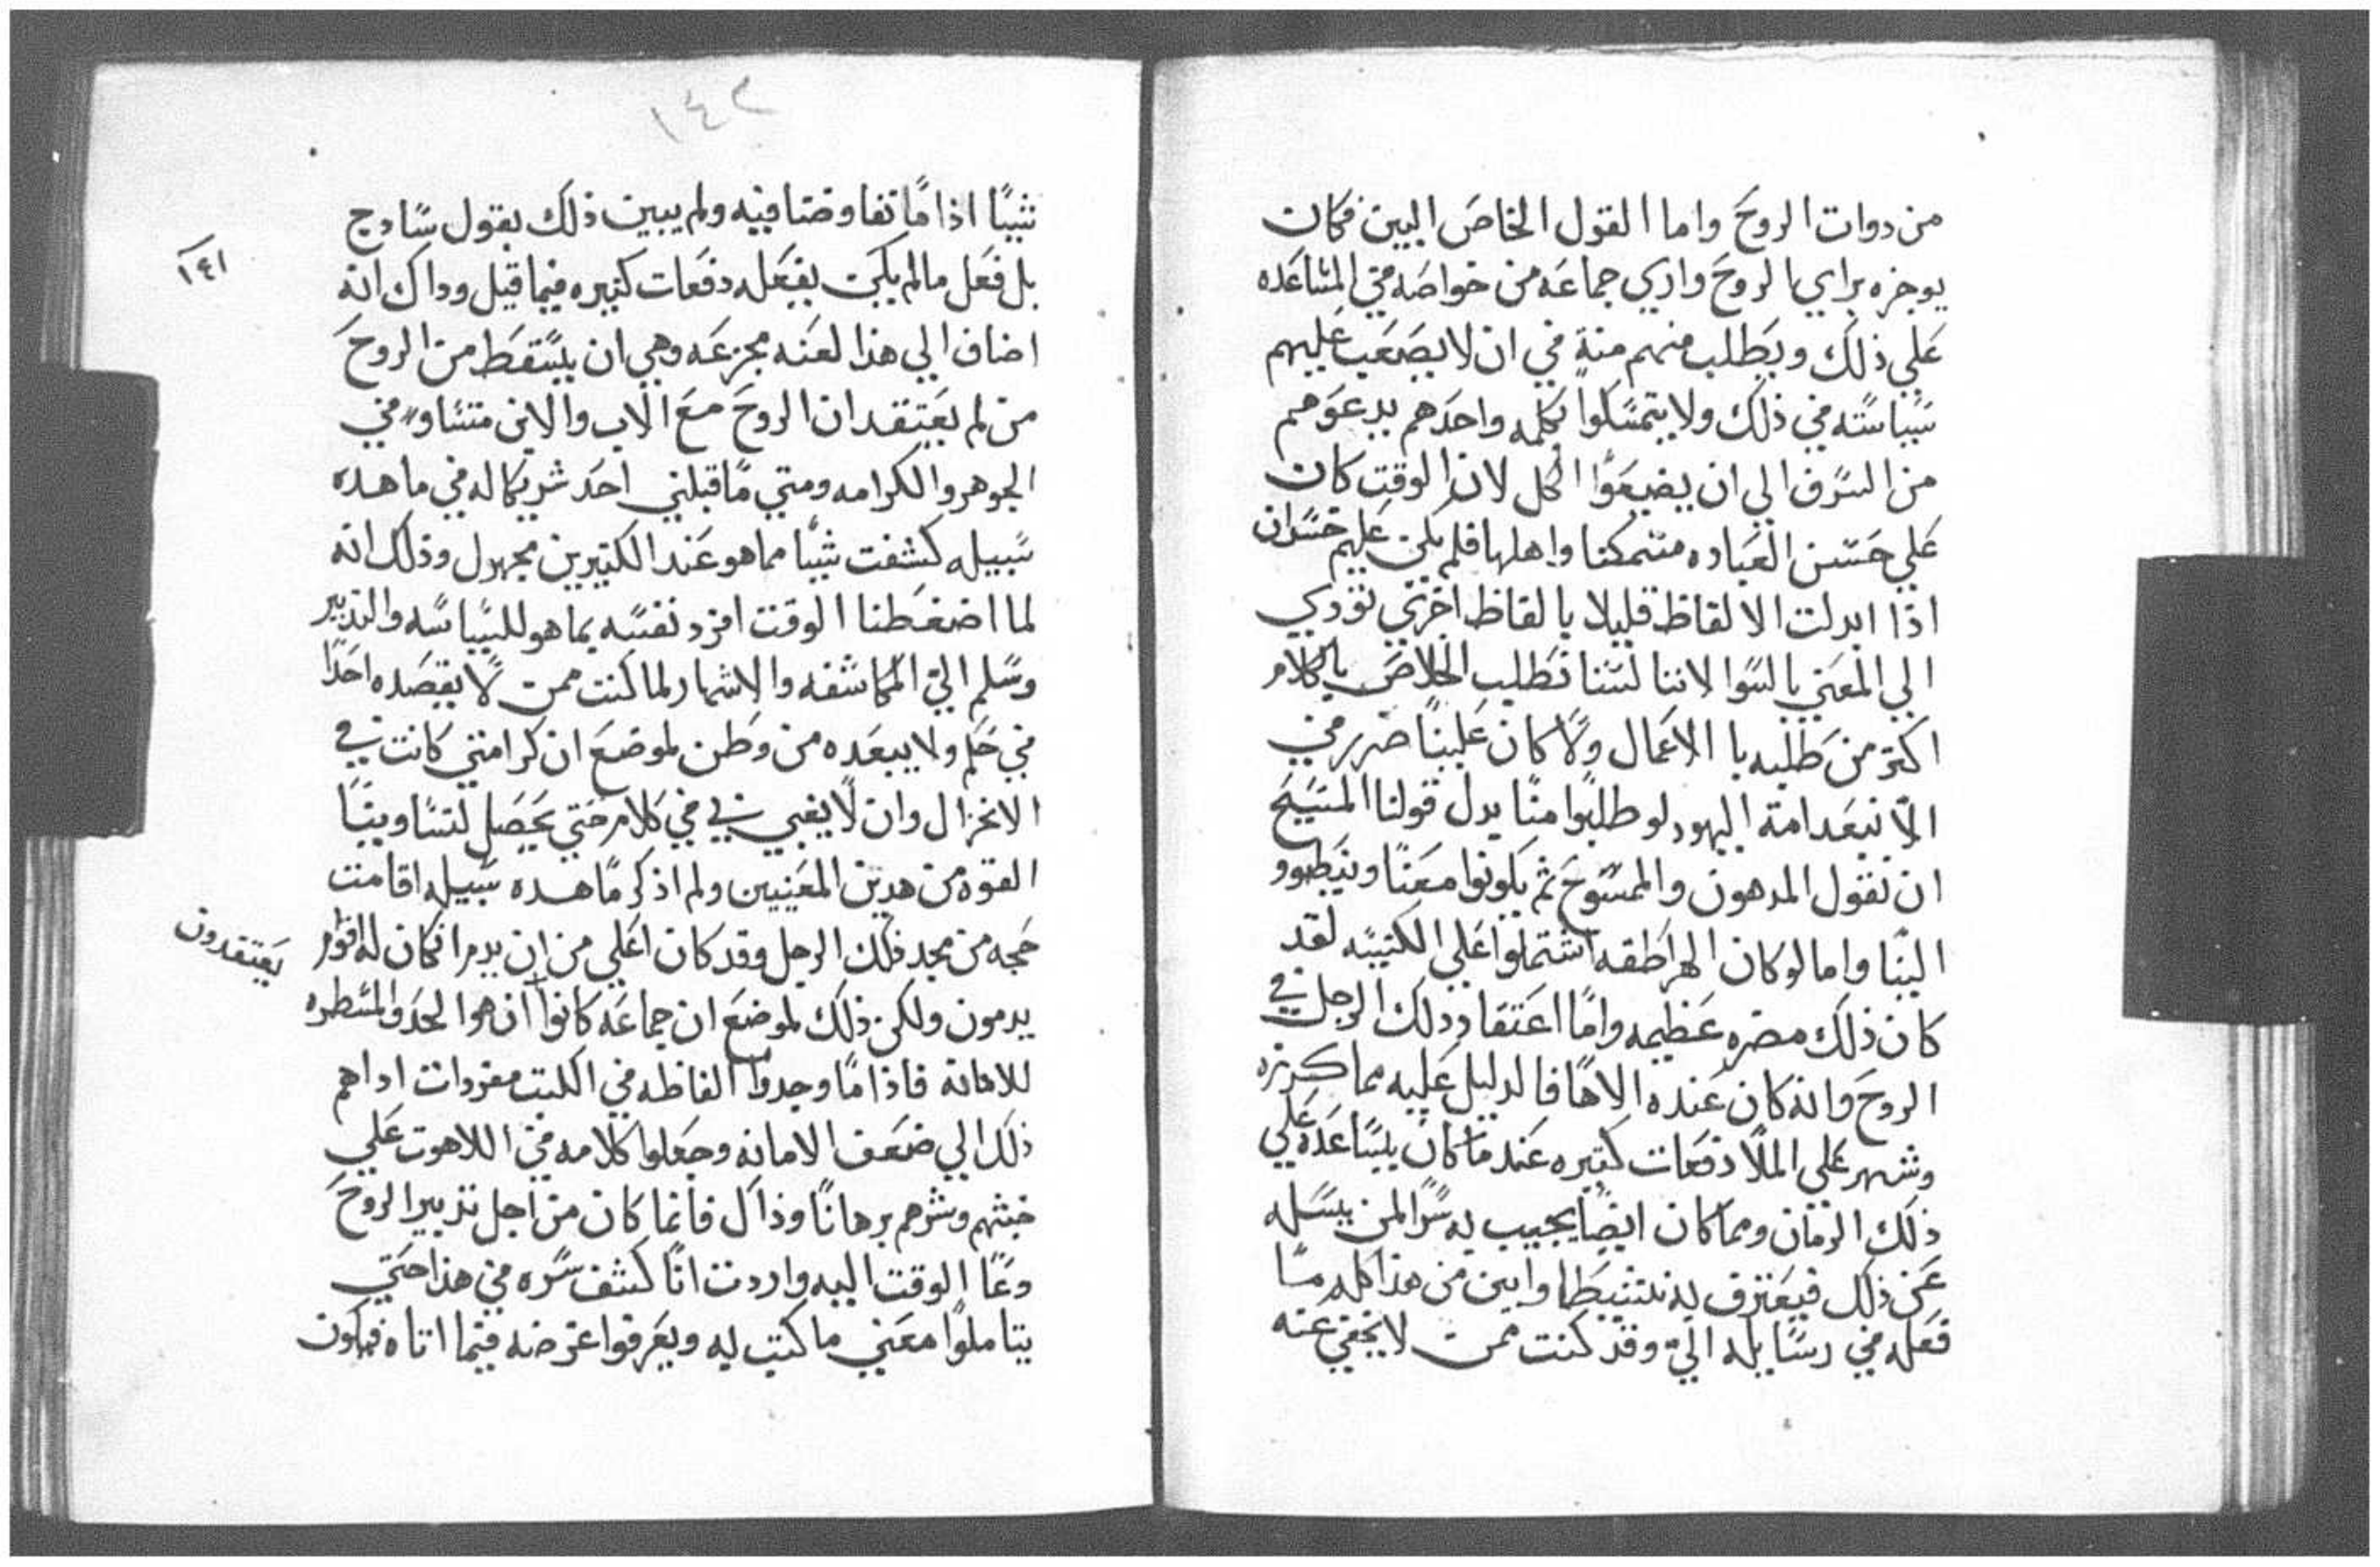 من دوات الروح واما القول الخاص البين فكان
يوجزه براي الروح واري جماعه من خواصه في المساعده
علي ذلك ويطلب منهم منة في ان لا يصعب عليهم
سياسته في ذلك ولا يتمسكوا بكلمه واحده يدعوهم
من السرف الي ان يضيعوا الكل لان الوقت كان
علي حسن العباده متمكنا واهلها فلم يكن عليهم خسران
اذا ابدلت الالفاظ قليلا بالفاظ اخري تؤدي
الي المعني بالسوا لاننا لسنا نطلب الخلاص بالكلام
اكتر من طلبه با الاعمال ولا كان علينا ضرر في
الا نبعد امة اليهود لو طلبوا منا بدل قولنا المسيح
ان نقول المدهون والممسوح ثم يكونوا معنا وينطووا
الينا واما لو كان الهراطقه اشتملوا علي الكنيسه لقد
كان ذلك مضره عظيمه واما اعتقاد دلك الرجل في
الروح وانه كان عنده الاها فالدليل عليه مما كرزه
وشهر علي الملا دفعات كتيره عندما كان يساعده علي
ذلك الزمان ومما كان ايضا يجيب به سرا لمن يسله
عن ذلك فيعترف به بنشيط وابين من هذا كله ما
فعله في رسايله الي وقد كنت ممن لا يخفي عنه
١٤٢
شيا اذا ما تفاوضنا فيه ولم يبين ذلك بقول سادج
١٤١
بل فعل مالم يكن يفعله دفعات كتيره فيما قبل وداك انه
اضاف الي هذا لعنه مجزعه وهي ان يسقط من الروح
من لم يعتقد ان الروح مع الاب والابن متساو في
الجوهر والكرامه ومتي ما قبلني احد شريكا له في ما هده
سبيله كشفت شيا مما هو عند الكتيرين مجهول وذلك انه
لما اضغطنا الوقت افرد نفسه بما هو للسياسه والتدبير
وسلم الي المكاشفه والاشهار لما كنت ممن لا يقصده احدا
في حكم ولا يبعده من وطن لموضع ان كرامتي كانت في
الانخزال وان لا يغبي في كلام حتي يحصل لتساوينا
القوه من هدين المعنيين ولم اذكر ما هده سبيله اقامت
حجه من مجد فلك الرجل وقد كان اعلي من ان يدم ان كان له اقوام
يدمون ولكن ذلك لموضع ان جماعه كانوا يعتقدون ان هوا الحد والمسطره
للامانه فاذا ما وجدوا الفاظه في الكتب مفردات اداهم
ذلك الي ضعف الامانه وجعلوا كلامه في اللاهوت علي
خبثهم وشرهم برهانا وذاك فانما كان من اجل تدبير الروح
دعا الوقت اليه واردت انا كشف سره في هذا حتي
يتاملوا معني ما كتب به ويعرفوا غرضه فيما اتاه فيكون